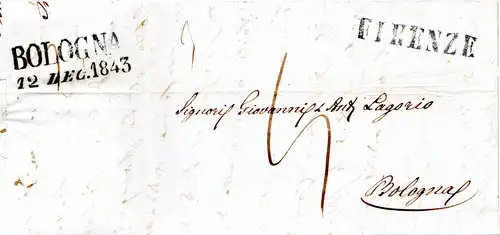 BOLOGNA
12 DEC.1843
FIRENZE
Signori Giovanni & Ant Lagorio
Bologna